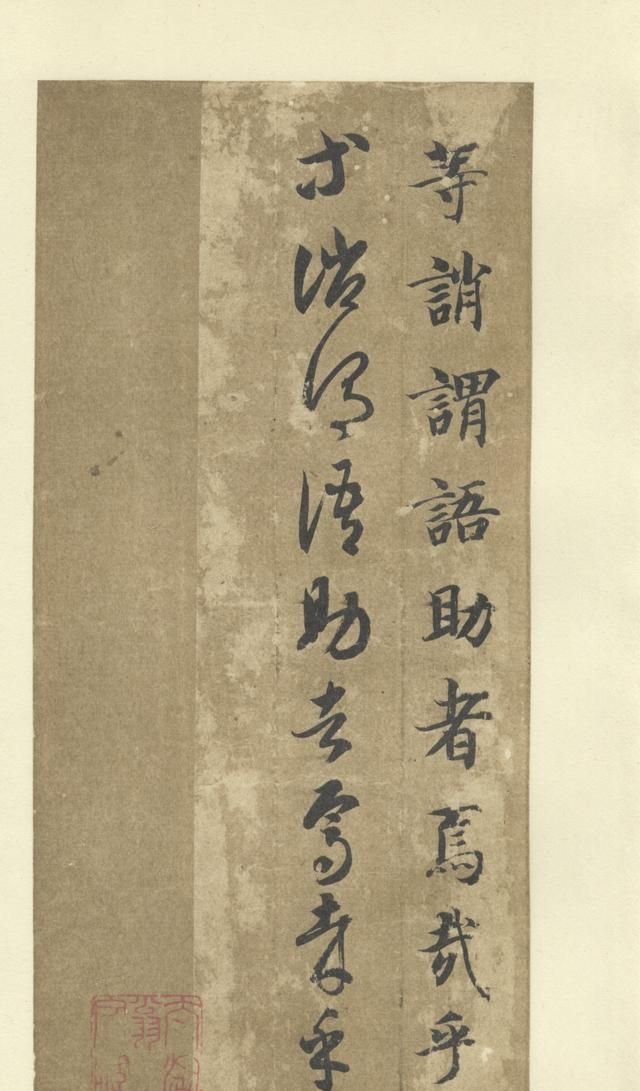 等誚謂語助者焉哉乎
等誚謂語助者焉哉乎